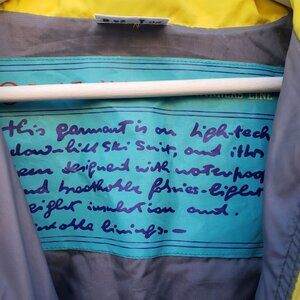 this garment is an high-tech
down-hill Ski Suit, and it has
been designed with waterproof
and breathable fabrics-light
weight insulation and
linings.—